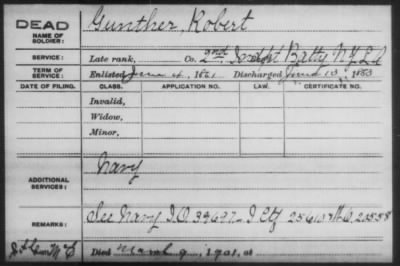 DEAD
NAME OF SOLDIER: Gunther, Robert
SERVICE: Late rank, Co. 2nd Indpt Batty N.Y. L.A
TERM OF SERVICE: Enlisted June 4, 1861 Discharged June 13, 1863
DATE OF FILING. CLASS. APPLICATION NO. LAW. CERTIFICATE NO.
Invalid,
Widow,
Minor,
ADDITIONAL SERVICES: Navy
REMARKS: See Navy I.O. 39697 I Ctf 25610 W.O. 20558
Died March 9, 1901, at